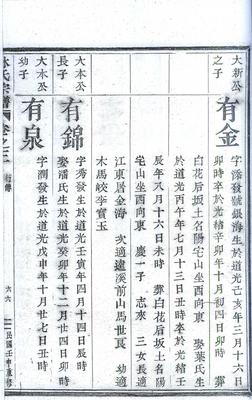 大新公
之子
有金
字添發號銀海生於道光己亥年三月十六日
卯時卒於光緒辛卯年十月初四日卯時 葬
白花后坂土名陽宅山坐西向東 娶葉氏生
於道光丙午年七月十三日丑時卒於光緒壬
辰年八月十六日未時 葬白花后坂土名陽
宅山坐西向東 慶一子 志來 三女長適
江東居金海 次適遠溪前山馬世長 幼適
木馬岐李寶玉
大本公
長子
有錦
字秀發生於道光壬寅年四月十四日辰時
娶潘氏生於道光癸卯年十二月廿四日卯時
大本公
幼子
有泉
字潤發生於道光戊申年十月廿七日丑時
林氏宗譜 卷之三 行傳
六六
民國壬申重修